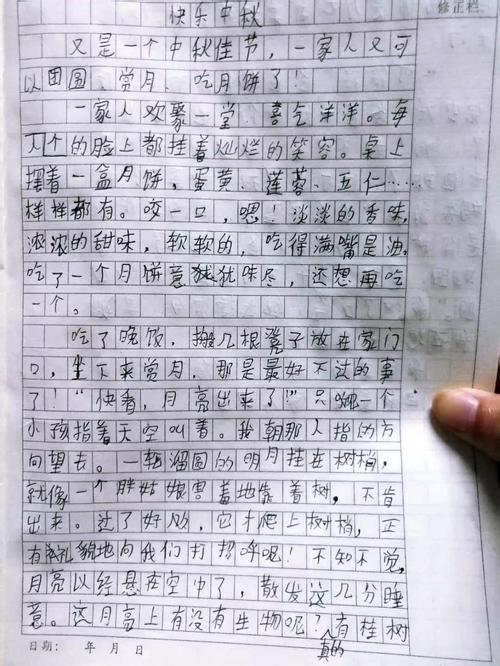 快乐中秋
修正栏
又是一个中秋佳节，一家人又可
以团圆、赏月、吃月饼了！
一家人欢聚一堂、喜气洋洋。每
个的脸上都挂着灿烂的笑容。桌上
摆着一盒月饼，蛋黄、莲蓉、五仁……
样样都有。咬一口，嗯！淡淡的香味，
浓浓的甜味，软软的，吃得满嘴是油。
吃了一个月饼意犹犹味尽，还想再吃
一个。
吃了晚饭，搬几根凳子放在家门
口，坐下来赏月，那是最好不过的事
了！“快看，月亮出来了！”只一个
小孩指着天空叫着。我朝那人指的方
向望去。一轮溜圆的明月挂在树梢，
就像一个胖姑娘害羞地靠着树，不肯
出来。过了好久，它才爬上树梢，正
有礼貌地向我们打招呼呢！不知不觉，
月亮以经悬在空中了，散发这几分睡
意。这月亮上有没有生物呢？有桂树
真的
日期： 年 月 日